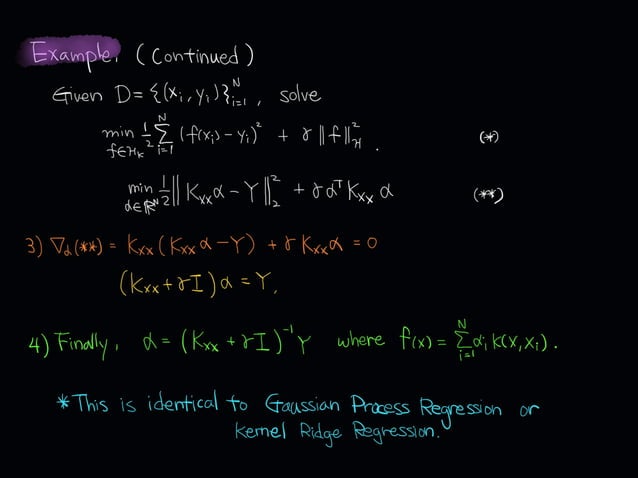 Example. (Continued)
Given D = {(xᵢ, yᵢ)}ᵢ₌₁ᴺ, solve
min_{f∈H_K} 1/2 Σ_{i=1}^{N} (f(xᵢ) − yᵢ)² + γ ‖f‖²_H . (*)
min_{α∈ℝᴺ} 1/2 ‖K_{XX} α − Y‖²₂ + γ αᵀ K_{XX} α (**)
3) ∇_α(**) = K_{XX} (K_{XX} α − Y) + γ K_{XX} α = 0
(K_{XX} + γI) α = Y,
4) Finally, α = (K_{XX} + γI)⁻¹ Y where f(x) = Σ_{i=1}^{N} αᵢ k(x, xᵢ).
*This is identical to Gaussian Process Regression or
Kernel Ridge Regression.